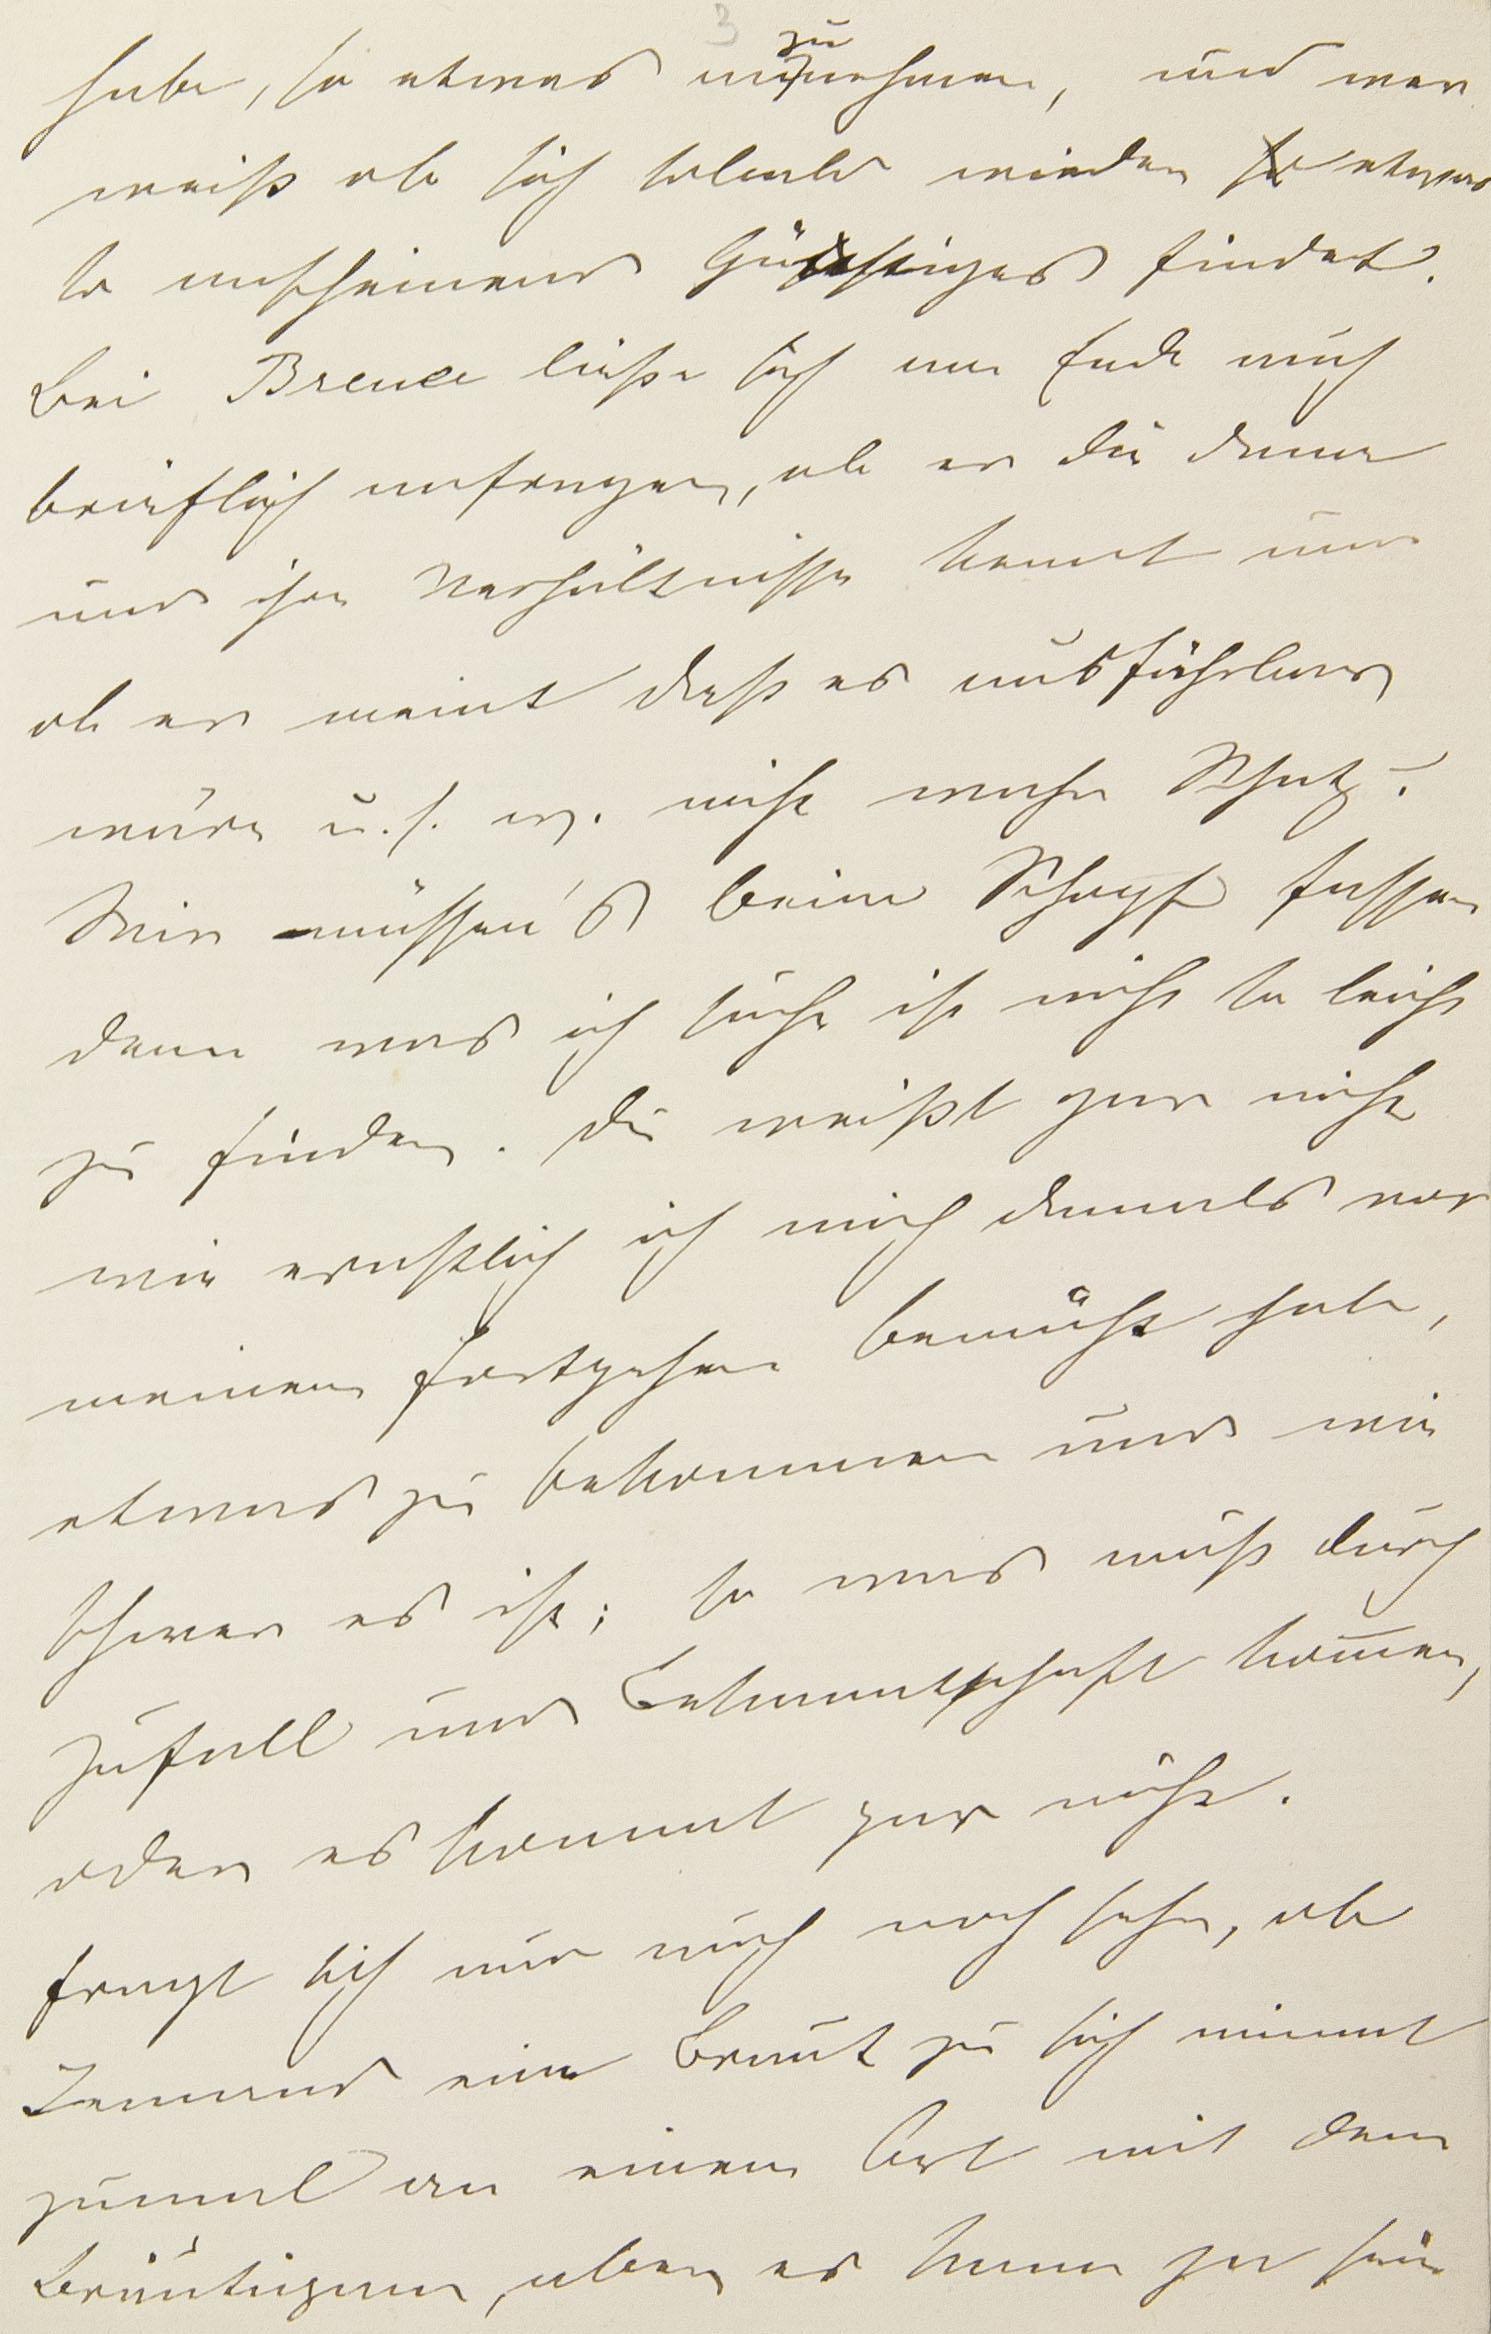 3
habe, so etwas anzunehmen, und wer
weiß ob sich sobald wieder so etwas
so anscheinend Günstiges findet.
Bei Brenner ließe sich am Ende auch
brieflich anfragen, ob er die Dame
und ihre Verhältnisse kennt und
ob er meint daß es ausführbar
wäre u. s. w. nicht wahr Schatz?
Wir müssen's beim Schopf fassen
denn was ich suche ist nicht so leicht
zu finden. Du weißt gar nicht
wie ernstlich ich mich damals vor
meinem Fortgehen bemüht habe,
etwas zu bekommen und wie
schwer es ist; so was muß durch
Zufall und Bekanntschaft kommen,
oder es kommt gar nicht.
Fragt sich nur auch noch sehr, ob
Jemand eine Braut zu sich nimmt
zumal an einem Ort mit dem
Bräutigam, aber es kann ja sein